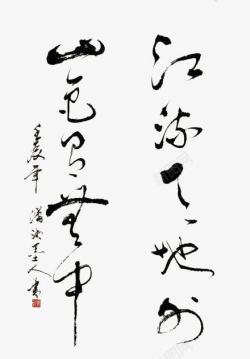 江流天地外
山色有無中
壬辰年
人書